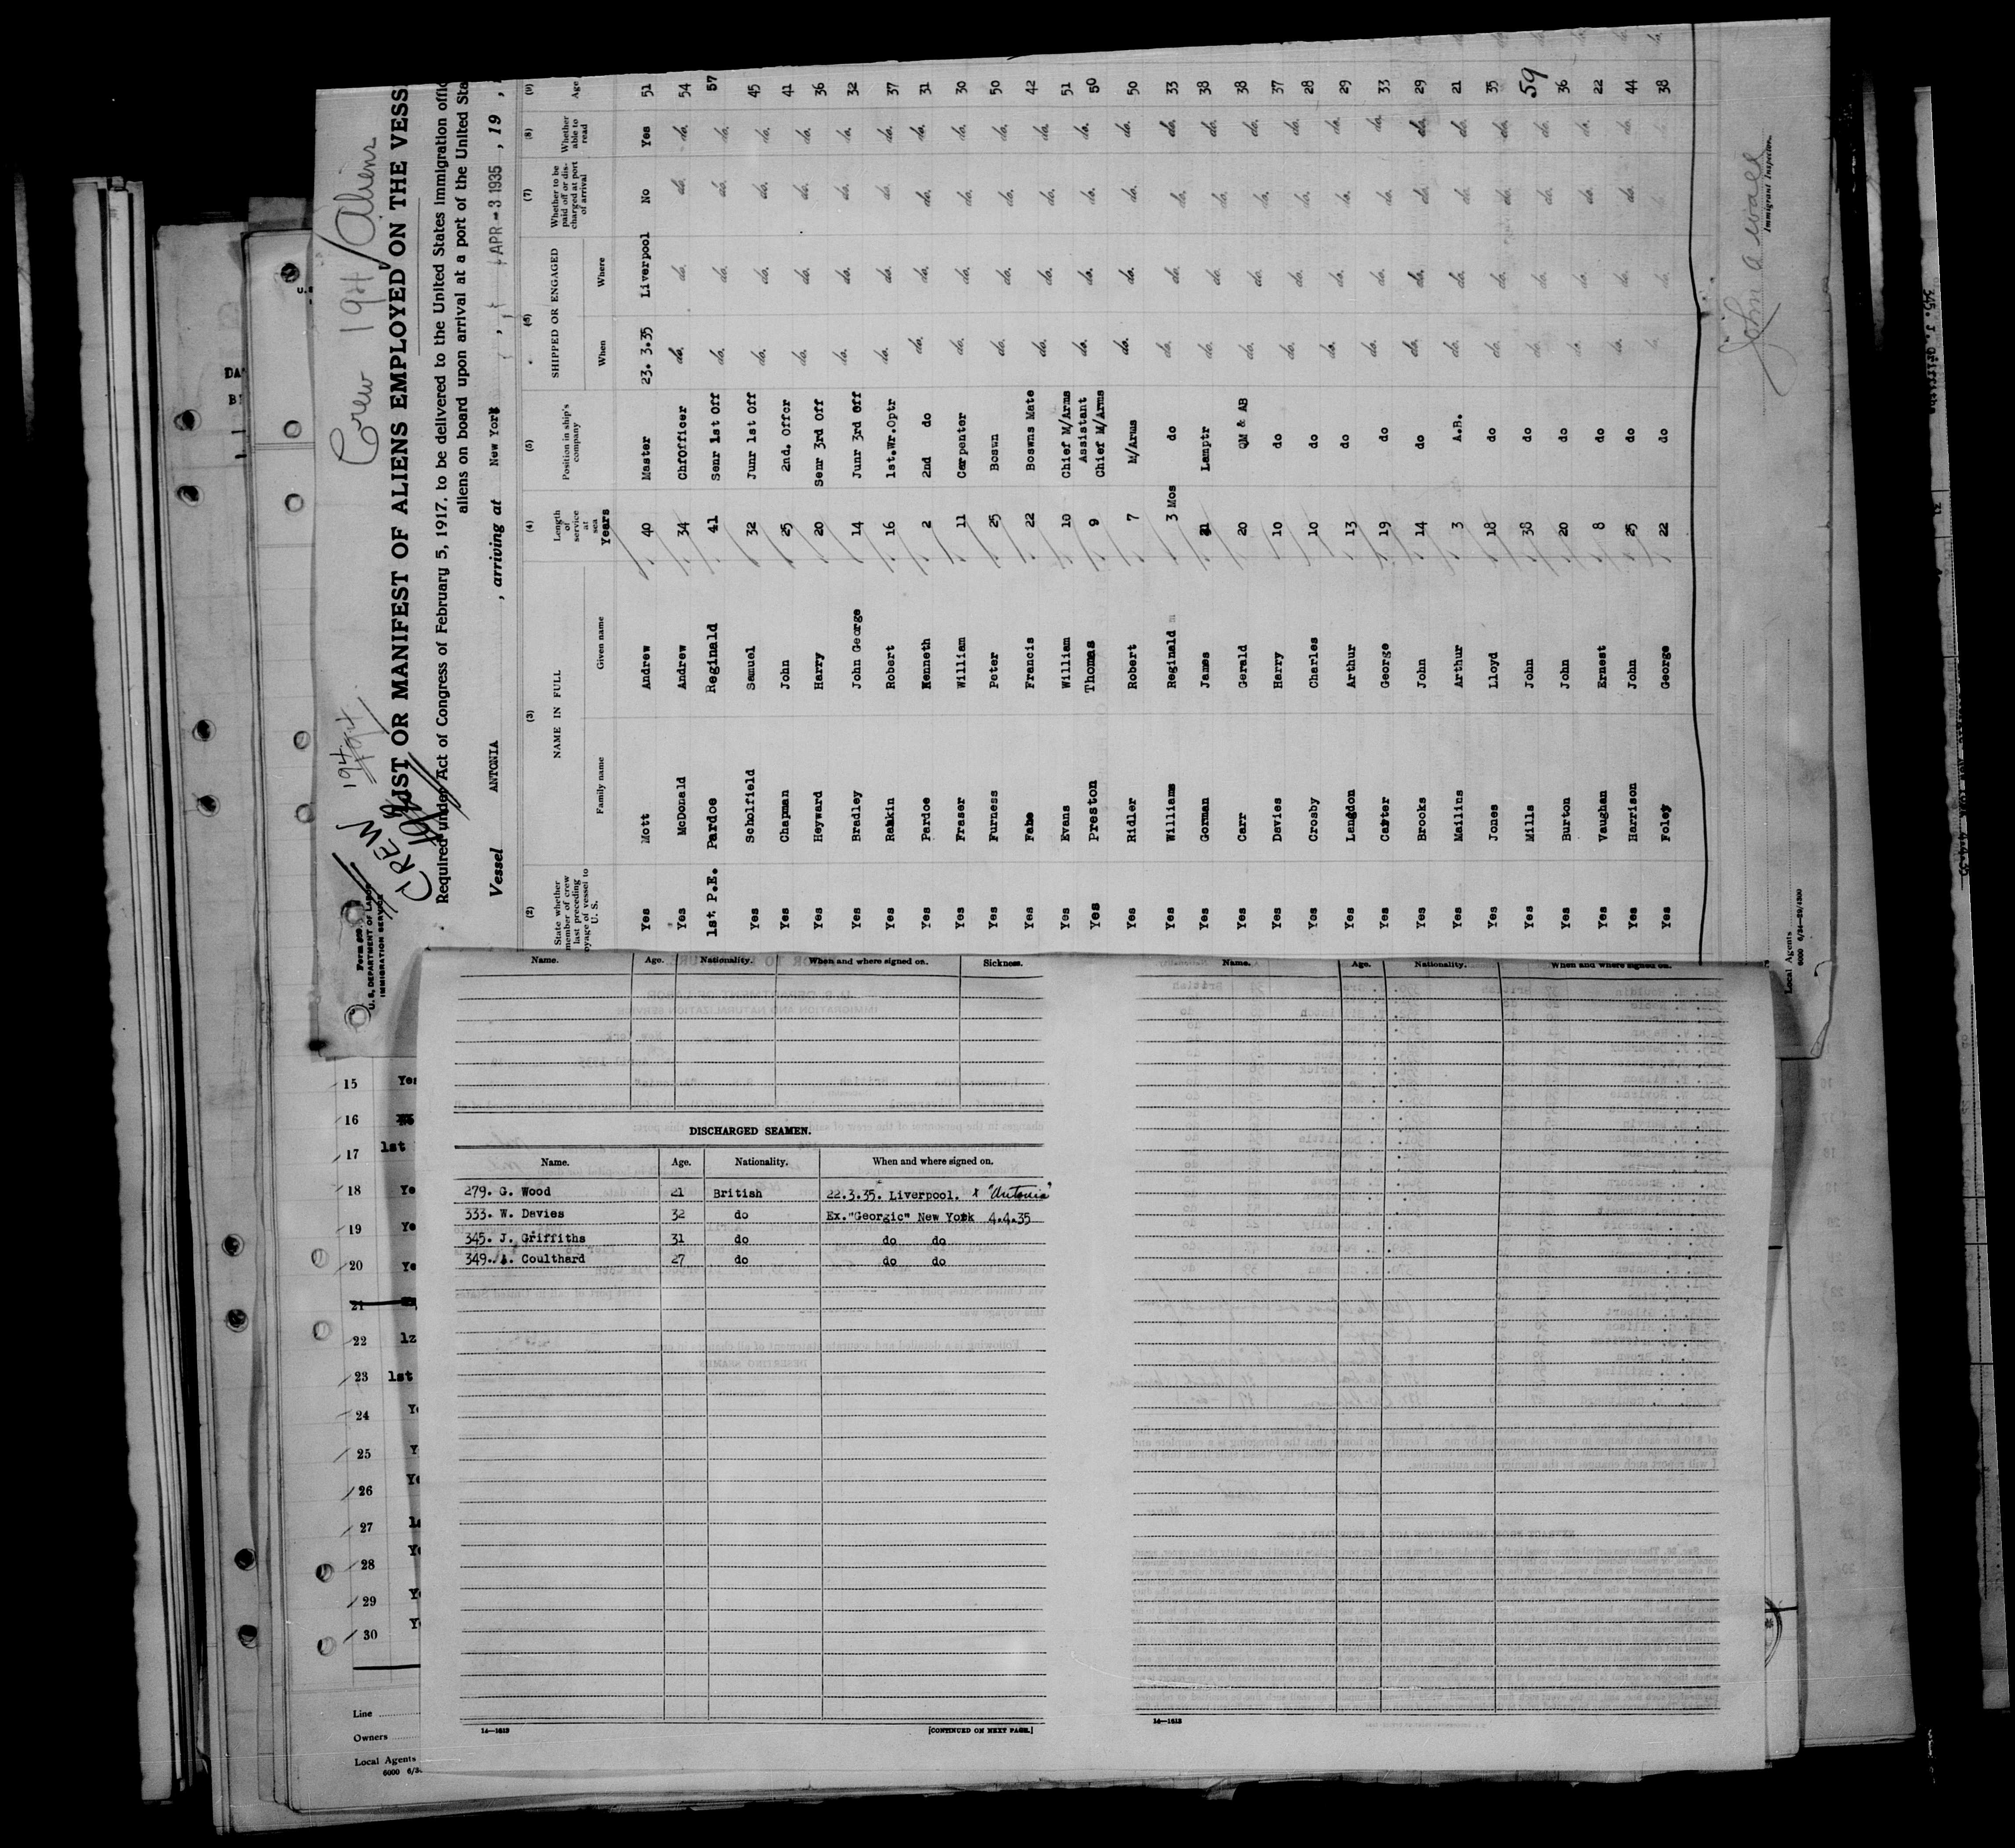 Crew 194 / Aliens
194
CREW
Form 689
U. S. DEPARTMENT OF LABOR
IMMIGRATION SERVICE
LIST OR MANIFEST OF ALIENS EMPLOYED ON THE VESS
Required under Act of Congress of February 5, 1917, to be delivered to the United States immigration offic
aliens on board upon arrival at a port of the United Sta
Vessel ANTONIA , arriving at New York , APR - 3 1935 , 19 ,
(2) (3) (4) (5) (6) (7) (8) (9)
State whether member of crew last preceding oyage of vessel to U. S. NAME IN FULL Family name Given name Length of service at sea Years Position in ship's company SHIPPED OR ENGAGED When Where Whether to be paid off or discharged at port of arrival Whether able to read Age
Yes Mott Andrew 40 Master 23. 3.35 Liverpool No Yes 51
Yes McDonald Andrew 34 ChfOfficer do. do. do. do. 54
1st P.E. Pardoe Reginald 41 Senr 1st Off do. do. do. do. 57
Yes Scholfield Samuel 32 Junr 1st Off do. do. do. do. 45
Yes Chapman John 25 2nd. Offcr do. do. do. do. 41
Yes Heyward Harry 20 Senr 3rd Off do. do. do. do. 36
Yes Bradley John George 14 Junr 3rd Off do. do. do. do. 32
Yes Rankin Robert 16 1st.Wr.Optr do. do. do. do. 37
Yes Pardoe Kenneth 2 2nd do do. do. do. do. 31
Yes Fraser William 11 Carpenter do. do. do. do. 30
Yes Furness Peter 25 Bosun do. do. do. do. 50
Yes Francis 22 Bosuns Mate do. do. do. do. 42
Yes Evans William 10 Chief M/Arms do. do. do. do. 51
Yes Preston Thomas 9 Assistant Chief M/Arms do. do. do. do. 50
Yes Ridler Robert 7 M/Arms do. do. do. do. 50
Yes Williams Reginald 3 Mos do do. do. do. do. 33
Yes Gorman James 21 Lamptr do. do. do. do. 38
Yes Carr Gerald 20 QM & AB do. do. do. do. 38
Yes Davies Harry 10 do do. do. do. do. 37
Yes Crosby Charles 10 do do. do. do. do. 28
Yes Langdon Arthur 13 do do. do. do. do. 29
Yes Carter George 19 do do. do. do. do. 33
Yes Brooks John 14 do do. do. do. do. 29
Yes Mailins Arthur 3 A.B. do. do. do. do. 21
Yes Jones Lloyd 18 do do. do. do. do. 35
Yes Mills John 38 do do. do. do. do. 59
Yes Burton John 20 do do. do. do. do. 36
Yes Vaughan Ernest 8 do do. do. do. do. 22
Yes Harrison John 25 do do. do. do. do. 44
Yes Foley George 22 do do. do. do. do. 38
John A Wall
Immigrant Inspector.
Local Agents
6000 6/34
345. J. Griffiths
15 Yes
16
17 1st
18 Ye
19 Ye
20 Ye
21
22
23 1st
24 Y
25 Y
26 Ye
27
28 Y
29 Y
30 Y
Line
Owners
Local Agents
6000 6/3
Name. Age. Nationality. When and where signed on. Sickness.
DISCHARGED SEAMEN.
Name. Age. Nationality. When and where signed on.
279. G. Wood 21 British 22.3.35. Liverpool. x "Antonia"
333. W. Davies 32 do Ex."Georgic" New York 4.4.35
345. J. Griffiths 31 do do do
349. A. Coulthard 27 do do do
14—1613 [CONTINUED ON NEXT PAGE.]
Name. Age. Nationality. When and where signed on.
14—1613